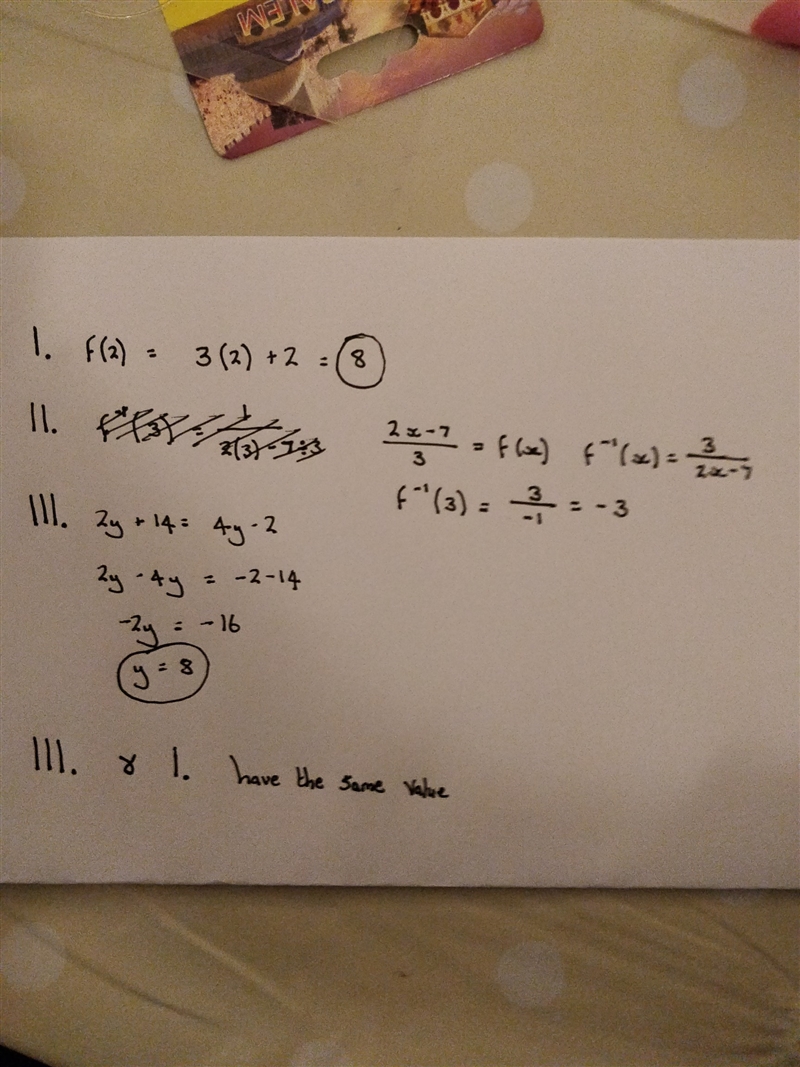 ALEM
I. f(2) = 3(2) + 2 = 8
II. 2x-7/3 = f(x) f⁻¹(x) = 3/2x-7
f⁻¹(3) = 3/-1 = -3
III. 2y + 14 = 4y - 2
2y - 4y = -2-14
-2y = -16
y = 8
III. & I. have the same value